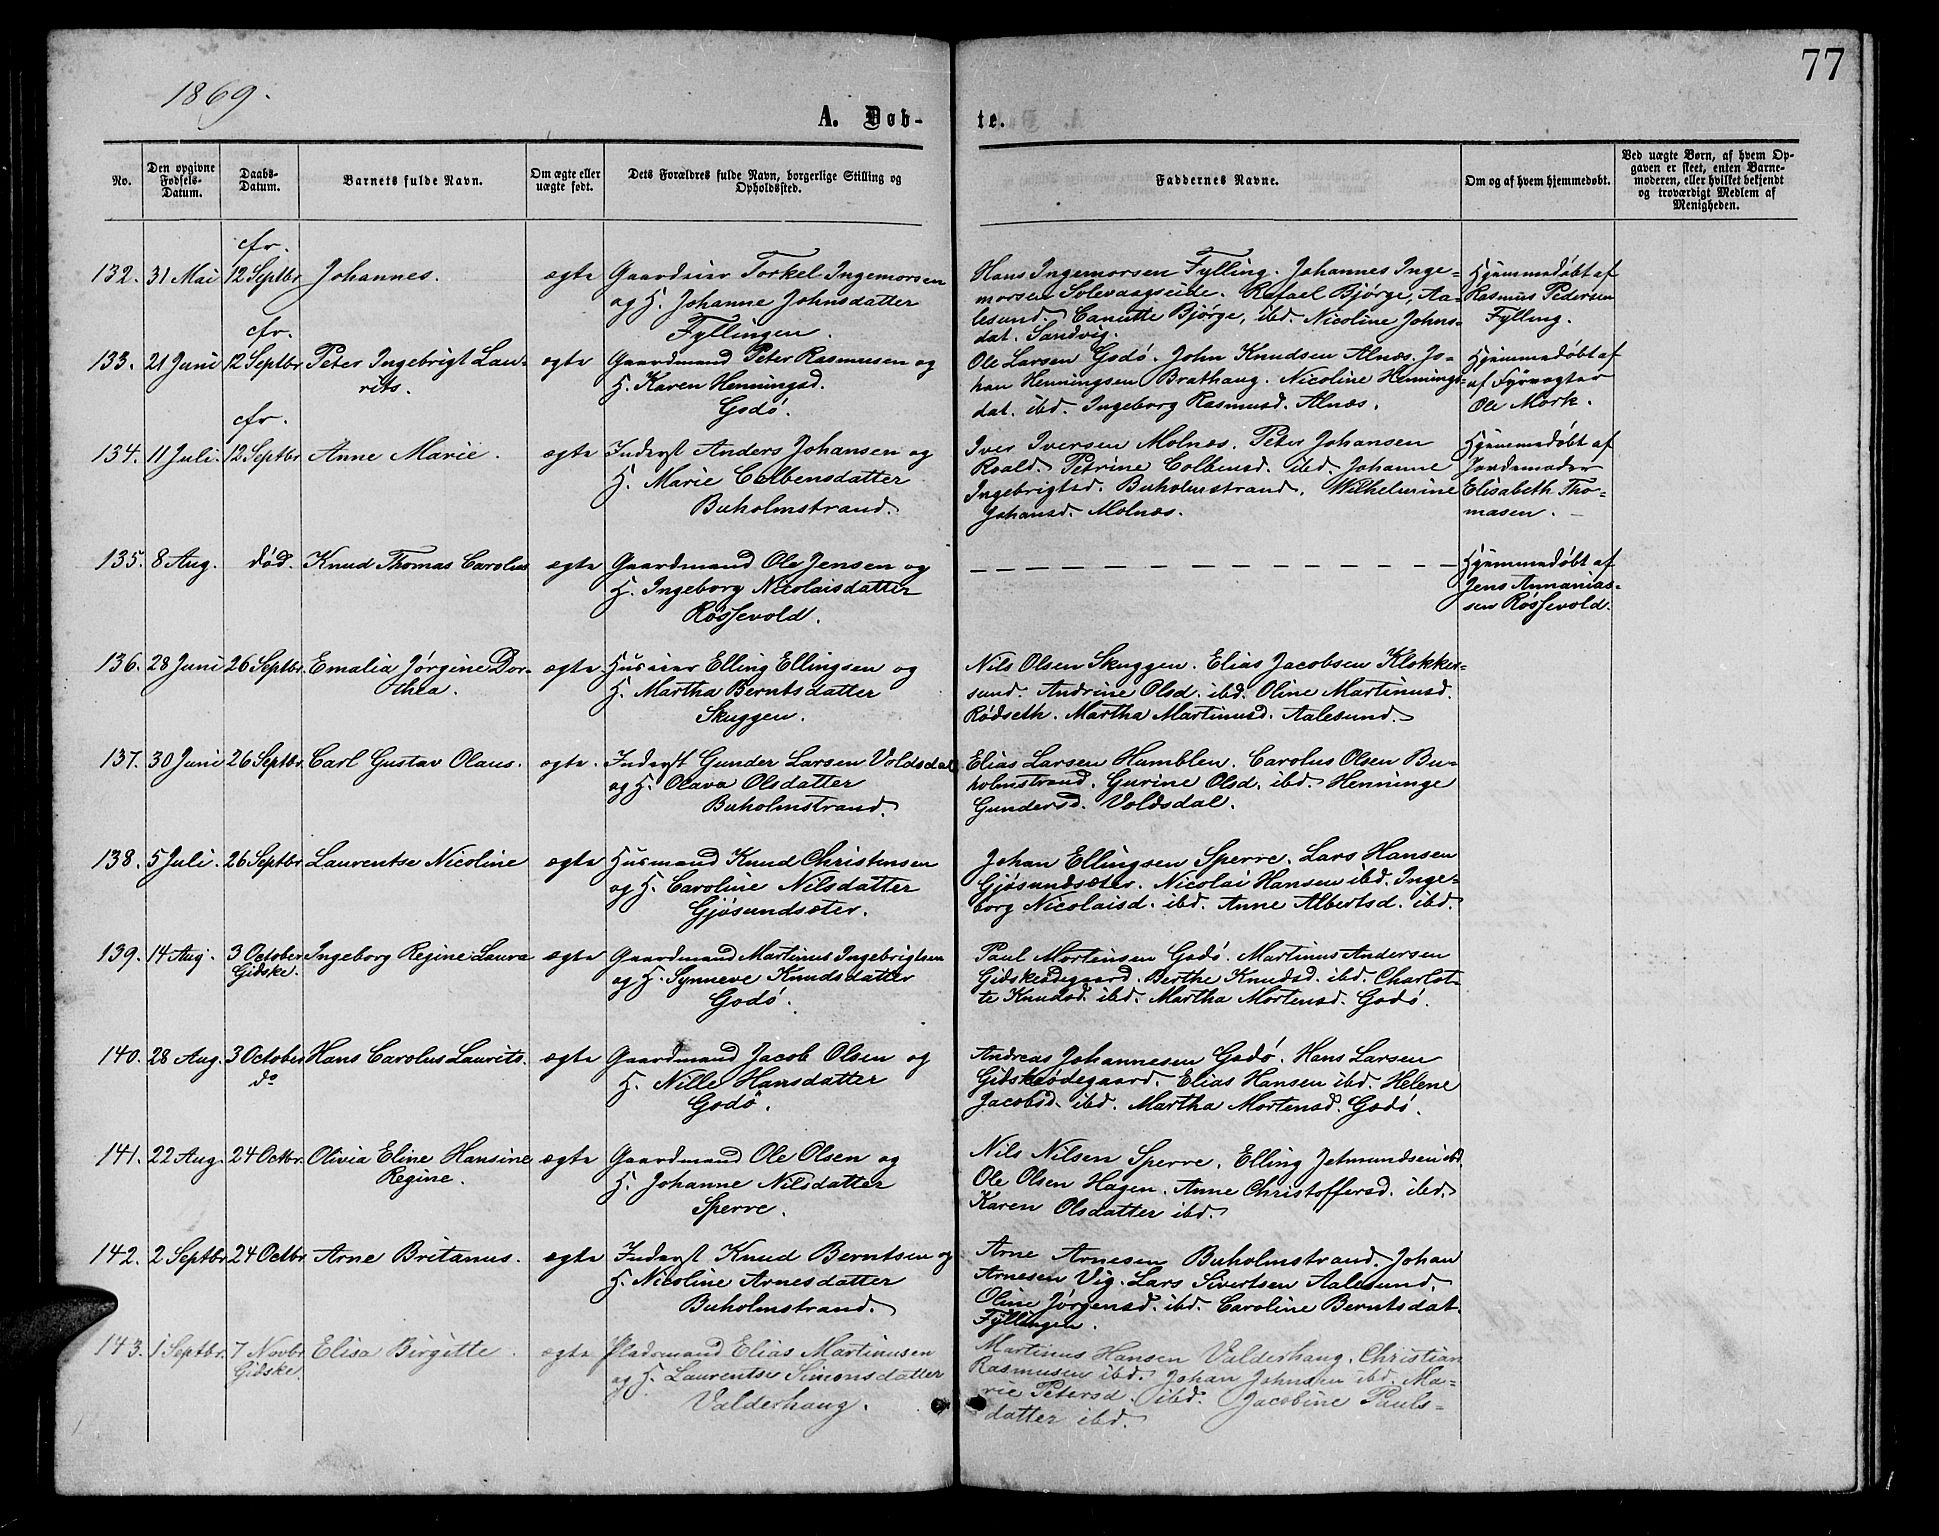 77
1869.
A. Døb- te.
No. | Den opgivne Fødsels-Datum. | Daabs-Datum. | Barnets fulde Navn. | Om ægte eller uægte født. | Dets Forældres fulde Navn, borgerlige Stilling og Opholdsted. | Faddernes Navne. | Om og af hvem hjemmedøbt. | Ved uægte Børn, af hvem Opgaven er sleet, enten Barnemoderen, eller hvilket bekjendt og troværdigt Medlem af Menigheden.
cfr.
132. 31 Mai 12 Septbr. Johannes. ægte Gaardeier Torkel Ingemorsen Hans Ingemorsen Fylling. Johannes Inge- Hjemmedøbt af
og H. Johanne Johnsdatter morsen Solevaagseide. Rafael Bjørge, Aa- Rasmus Pedersen
Fyllingen. lesund. Canutte Bjørge, ibd. Nicoline Johns- Fylling.
dat. Sandvig.
cfr.
133. 21 Juni 12 Septbr Peter Ingebrigt Lau- ægte Gaardmand Peter Rasmussen og Ole Larsen Godø. John Knudsen Alnæs. Jo- Hjemmedøbt af
rits. H. Karen Henningsd. han Henningsen Brathaug. Nicoline Hennings- af Fyrvogter
Godø. dat. ibd. Ingeborg Rasmusd. Alnæs. Ole Mork.
cfr.
134. 11 Juli. 12 Septbr. Anne Marie. ægte Inderst Anders Johansen og Iver Iversen Molnæs. Peter Johansen Hjemmedøbt af
H. Marie Colbensdatter Roald. Petrine Colbensd. ibd. Johanne Jordemoder
Buholmstrand. Ingebrigtsd. Buholmstrand. Wilhelmine Elisabeth Tho-
Johansd. Molnæs. masen. –
135. 8 Aug. død. Knud Thomas Carolus ægte Gaardmand Ole Jensen og – – – – – – – – – – – – – Hjemmedøbt af
H. Ingeborg Nicolaisdatter Jens Annanias-
Røssevold. sen Røssevold.
136. 28 Juni 26 Septbr. Emalia Jørgine Do- ægte Huseier Elling Ellingsen og Nils Olsen Skuggen. Elias Jacobsen Klokker-
rthea. H. Martha Berntsdatter sund. Andrine Olsd. ibd. Oline Martinusd.
Skuggen. Rødseth. Martha Martinusd. Aalesund.
137. 30 Juni 26 Septbr. Carl Gustav Olaus. ægte. Inderst Gunder Larsen Voldsdal Elias Larsen Humblen. Carolus Olsen Bu-
og H. Olava Olsdatter holmstrand. Gurine Olsd. ibd. Henninge
Buholmstrand. Gundersd. Voldsdal.
138. 5 Juli. 26 Septbr Laurentse Nicoline ægte Husmand Knud Christensen Johan Ellingsen Sperre. Lars Hansen
og H. Caroline Nilsdatter Gjøsundsæter. Nicolai Hansen ibd. Inge-
Gjøsundsæter. borg Nicolaisd. ibd. Anne Albertsd. ibd.
139. 14 Aug. 3 October Ingeborg Regine Laura ægte Gaardmand Martinus Ingebrigtsen Paul Mortensen Godø. Martinus Andersen
Gidske. og H. Synneve Knudsdatter Gidskeødegaard. Berthe Knudsd. ibd. Charlot-
Godø. te Knudsd. ibd. Martha Mortensd. Godø.
140. 28 Aug. 3 October Hans Carolus Laurits. ægte Gaardmand Jacob Olsen og Andreas Johannesen Godø. Hans Larsen
do H. Nille Hansdatter Gidskeødegaard. Elias Hansen ibd. Helene
Godø. Jacobsd. ibd. Martha Mortensd. Godø.
141. 22 Aug. 24 Octbr. Olivia Eline Hansine ægte Gaardmand Ole Olsen og Nils Nilsen Sperre. Elling Jetmundsen ibd.
Regine. H. Johanne Nilsdatter Ole Olsen Hagen. Anne Christoffersd. ibd.
Sperre. Karen Olsdatter ibd.
142. 2 Septbr 24 Octbr Arne Britanus. ægte Inderst Knud Berntsen og Arne Arnesen Buholmstrand. Johan
H. Nicoline Arnesdatter Arnesen Vig. Lars Sivertsen Aalesund.
Buholmstrand. Oline Jørgensd. ibd. Caroline Berntsdat.
Fyllingen.
143. 1 Septbr. 7 Novbr Elisa Birgitte. ægte Pladsmand Elias Martinusen Martinus Hansen Valderhaug. Christian
Gidske. og H. Laurentse Simonsdatter Rasmussen ibd. Johan Johnsen ibd. Ma-
Valderhaug. rie Petersd. ibd. Jacobine Pauls-
datter ibd.